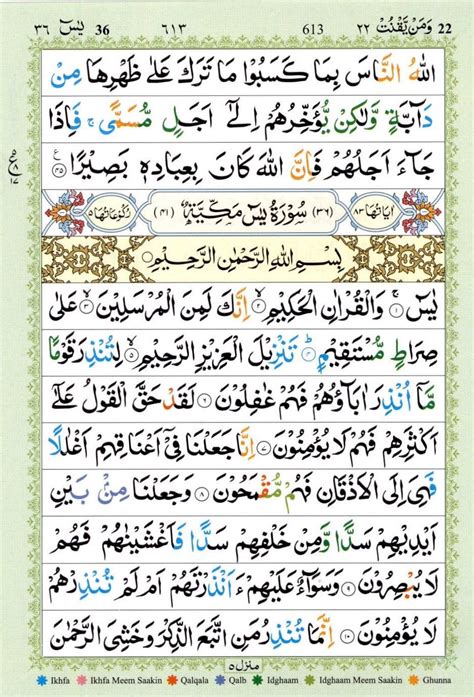 يٰسٓ ٣٦ 36 ٦١٣ 613 وَمَنْ يَّقْنُتْ ٢٢ 22
اللّٰهُ النَّاسَ بِمَا كَسَبُوْا مَا تَرَكَ عَلٰى ظَهْرِهَا مِنْ
دَآبَّةٍ وَّلٰكِنْ يُّؤَخِّرُهُمْ اِلٰٓى اَجَلٍ مُّسَمًّى ۚ فَاِذَا
جَآءَ اَجَلُهُمْ فَاِنَّ اللّٰهَ كَانَ بِعِبَادِهٖ بَصِيْرًا ۝٤٥
اٰيَاتُهَا ٨٣ (٣٦) سُوْرَةُ يٰسٓ مَكِّيَّةٌ (٤١) رُكُوْعَاتُهَا ٥
بِسْمِ اللّٰهِ الرَّحْمٰنِ الرَّحِيْمِ
يٰسٓ ۝١ وَالْقُرْاٰنِ الْحَكِيْمِ ۝٢ اِنَّكَ لَمِنَ الْمُرْسَلِيْنَ ۝٣ عَلٰى
صِرَاطٍ مُّسْتَقِيْمٍ ۝٤ تَنْزِيْلَ الْعَزِيْزِ الرَّحِيْمِ ۝٥ لِتُنْذِرَ قَوْمًا
مَّآ اُنْذِرَ اٰبَآؤُهُمْ فَهُمْ غٰفِلُوْنَ ۝٦ لَقَدْ حَقَّ الْقَوْلُ عَلٰٓى
اَكْثَرِهِمْ فَهُمْ لَا يُؤْمِنُوْنَ ۝٧ اِنَّا جَعَلْنَا فِيْٓ اَعْنَاقِهِمْ اَغْلٰلًا
فَهِيَ اِلَى الْاَذْقَانِ فَهُمْ مُّقْمَحُوْنَ ۝٨ وَجَعَلْنَا مِنْۢ بَيْنِ
اَيْدِيْهِمْ سَدًّا وَّمِنْ خَلْفِهِمْ سَدًّا فَاَغْشَيْنٰهُمْ فَهُمْ
لَا يُبْصِرُوْنَ ۝٩ وَسَوَآءٌ عَلَيْهِمْ ءَاَنْذَرْتَهُمْ اَمْ لَمْ تُنْذِرْهُمْ
لَا يُؤْمِنُوْنَ ۝١٠ اِنَّمَا تُنْذِرُ مَنِ اتَّبَعَ الذِّكْرَ وَخَشِيَ الرَّحْمٰنَ
منزل ٥
Ikhfa Ikhfa Meem Saakin Qalqala Qalb Idghaam Idghaam Meem Saakin Ghunna